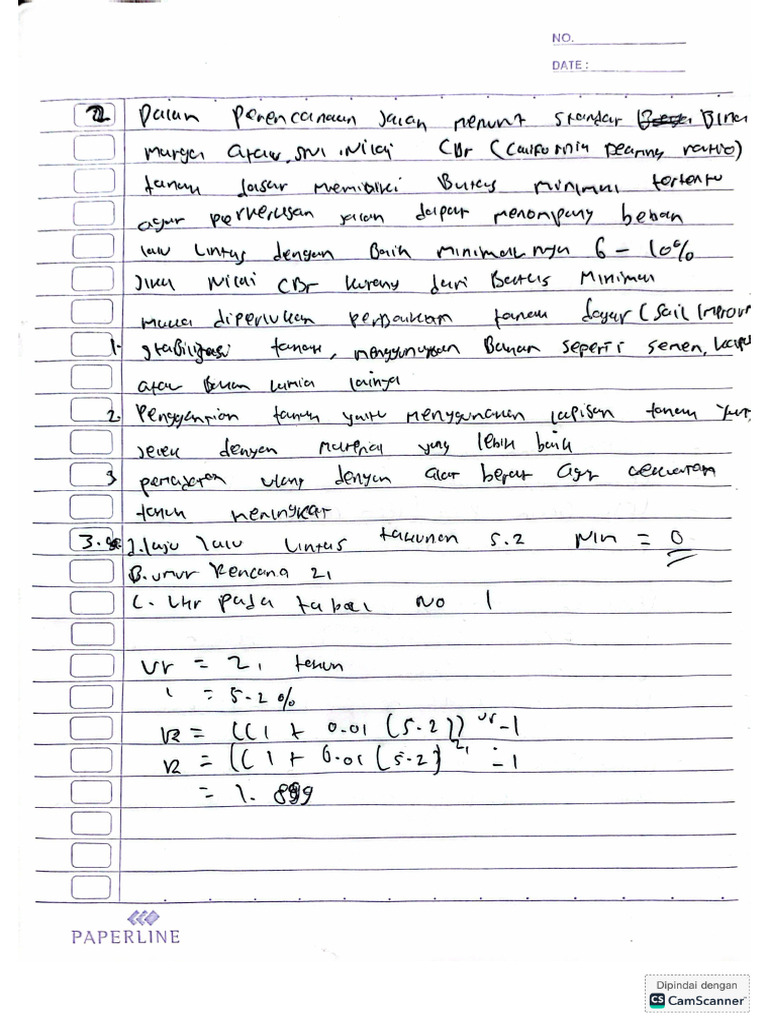 NO.
DATE :
2 Dalam Perencanaan Jalan menurut standar Bina
marga atau SNI Nilai CBr (California Bearing ratio)
tanah dasar memiliki Batas minimal tertentu
agar perkerasan jalan dapat menompang beban
lalu lintas dengan Baik minimalnya 6 - 10%
Jika Nilai CBr kurang dari Batas Minimal
maka diperlukan perbaikan tanah dasar (Sail Improv
1. stabilisasi tanah, menggunakan Bahan seperti semen, kapu
atau Bahan kimia lainya
2. Penggantian tanah yaitu menggunakan lapisan tanah
Jelek dengan material yang lebih baik
3 pemadatan ulang dengan alat berat agar
tanah meningkat
3. J. laju lalu lintas tahunan 5.2 Min = 0
B. umur Rencana 21
C. LHr pada tabel No 1
Ur = 21 tahun
i = 5.2 %
R = ((1 + 0.01 (5.2)) ur - 1
R = ((1 + 0.01 (5.2) 21 - 1
= 1. 899
PAPERLINE
Dipindai dengan
CS CamScanner